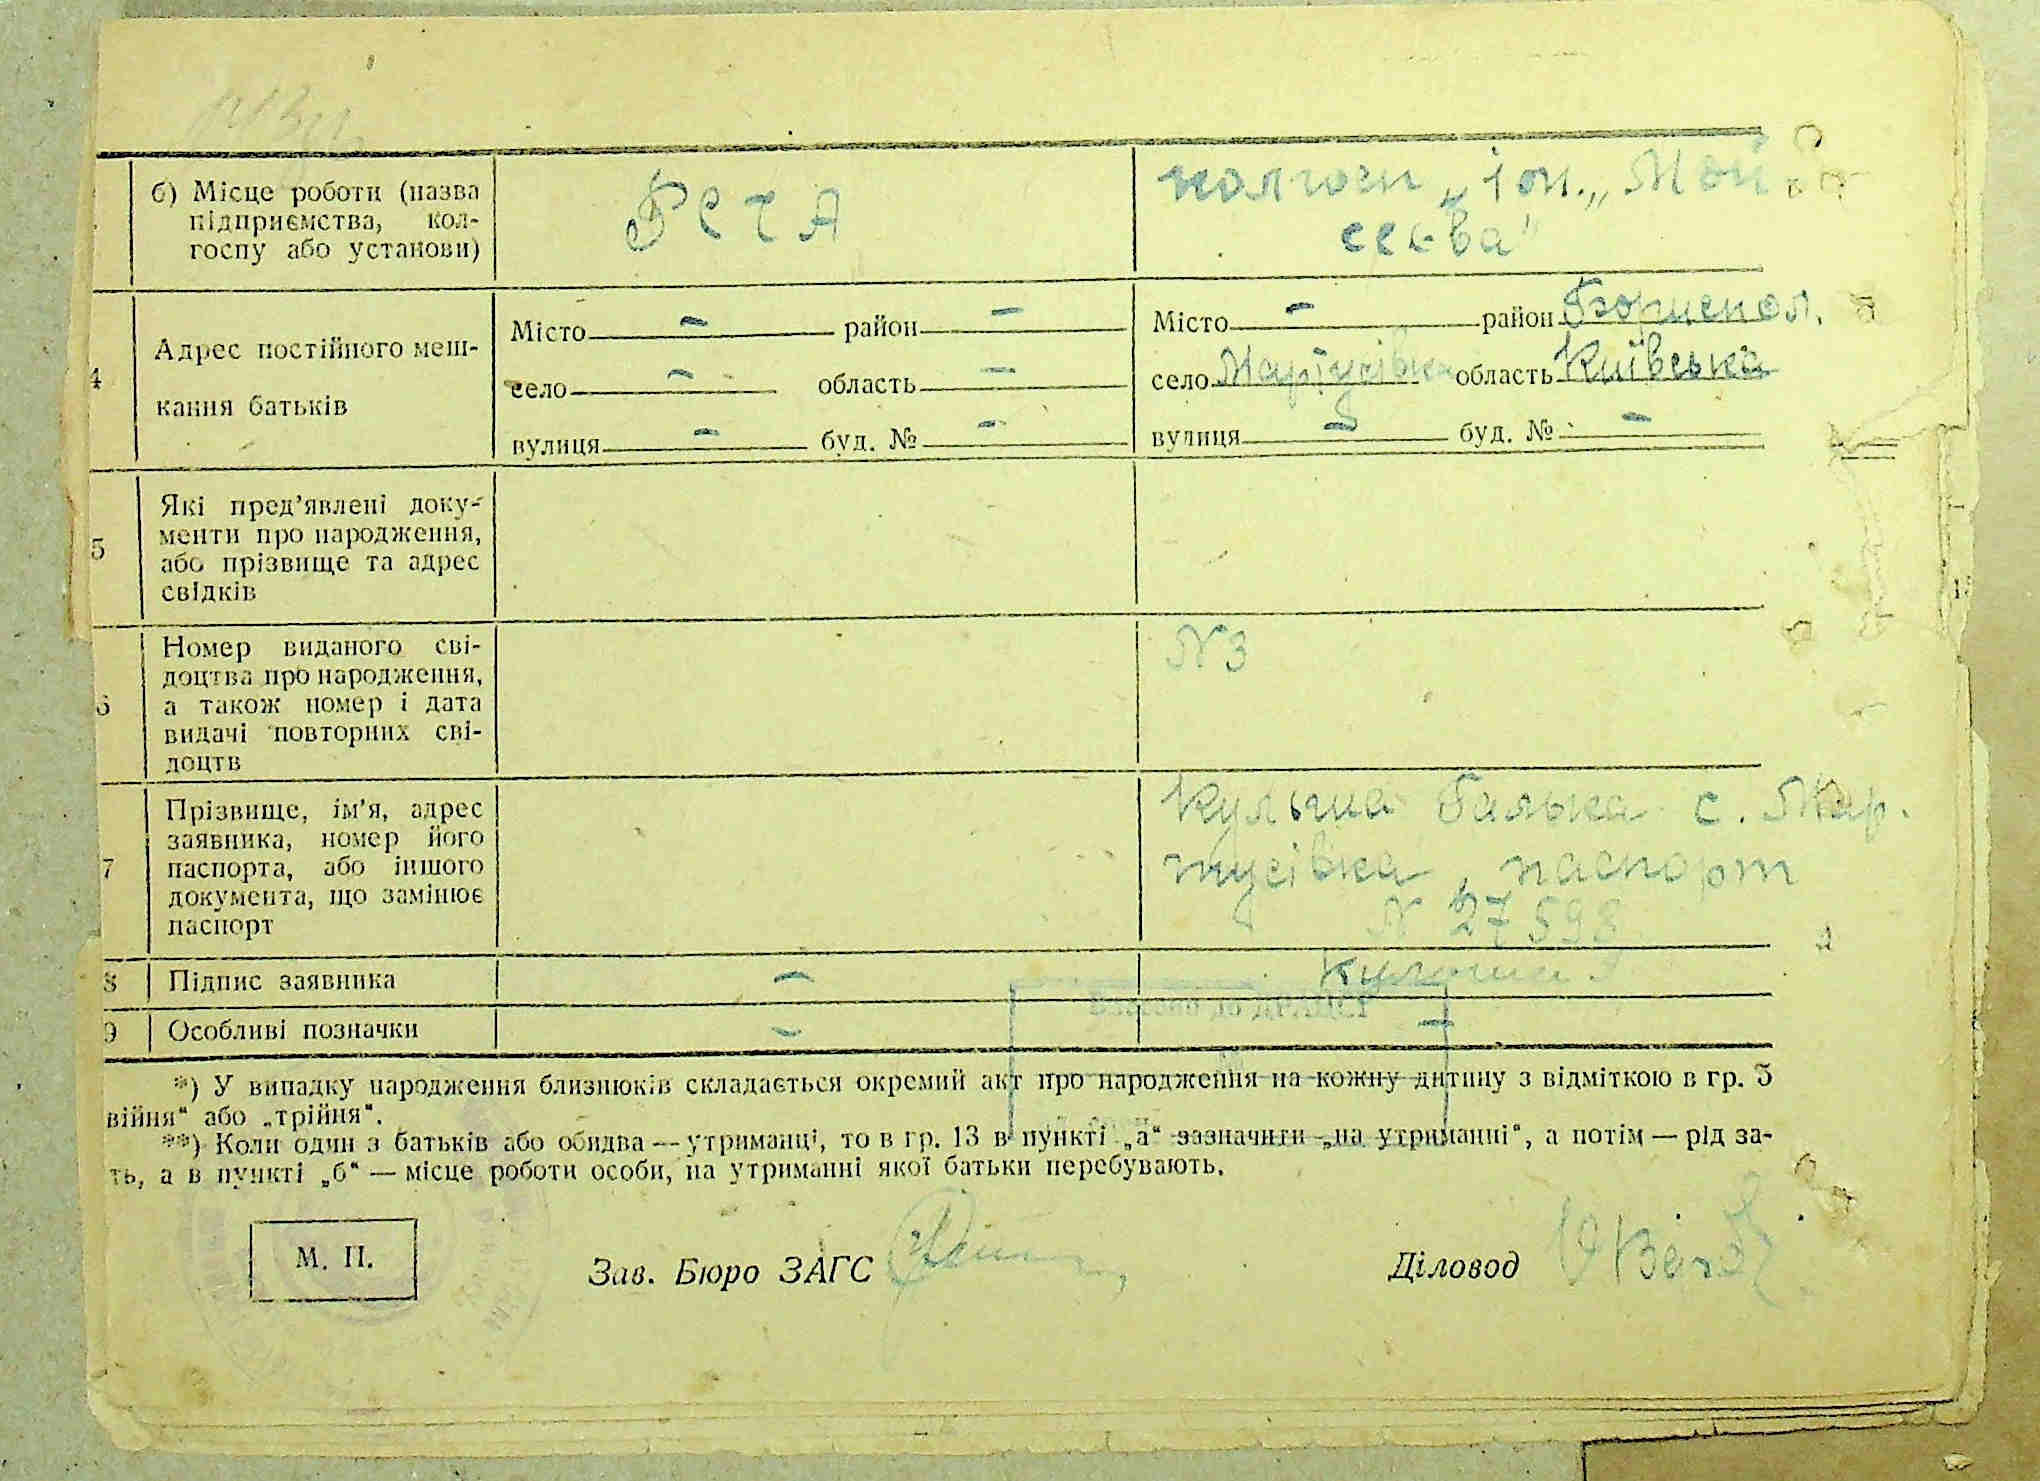 б) Місце роботи (назва
підприємства, кол-
госпу або установи)
РСЧА
колгосп „ім. „Мой
сеєва"
4
Адрес постійного меш-
кання батьків
Місто — район —
село — область —
вулиця — буд. № —
Місто — район Борispол.
село Мартусівка область Київська
вулиця — буд. № —
5
Які пред’явлені доку-
менти про народження,
або прізвище та адрес
свідків
6
Номер виданого сві-
доцтва про народження,
а також номер і дата
видачі повторних сві-
доцтв
N 3
7
Прізвище, ім’я, адрес
заявника, номер його
паспорта, або іншого
документа, що замінює
паспорт
Кульша Галька с. Мар.
тусівка, паспорт
N 27598
8
Підпис заявника
—
9
Особливі позначки
—
—
*) У випадку народження близнюків складається окремий акт про народження на кожну дитину з відміткою в гр. 3
війня“ або „трійня“.
**) Коли один з батьків або обидва — утриманці, то в гр. 13 в пункті „а“ зазначити „на утриманні“, а потім — рід за-
ть, а в пункті „б“ — місце роботи особи, на утриманні якої батьки перебувають.
М. П.
Зав. Бюро ЗАГС
Діловод